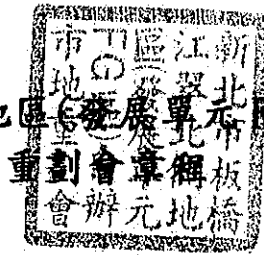 地區(發展單元
重劃會章程
新北市板橋
江翠北地
市地重劃會